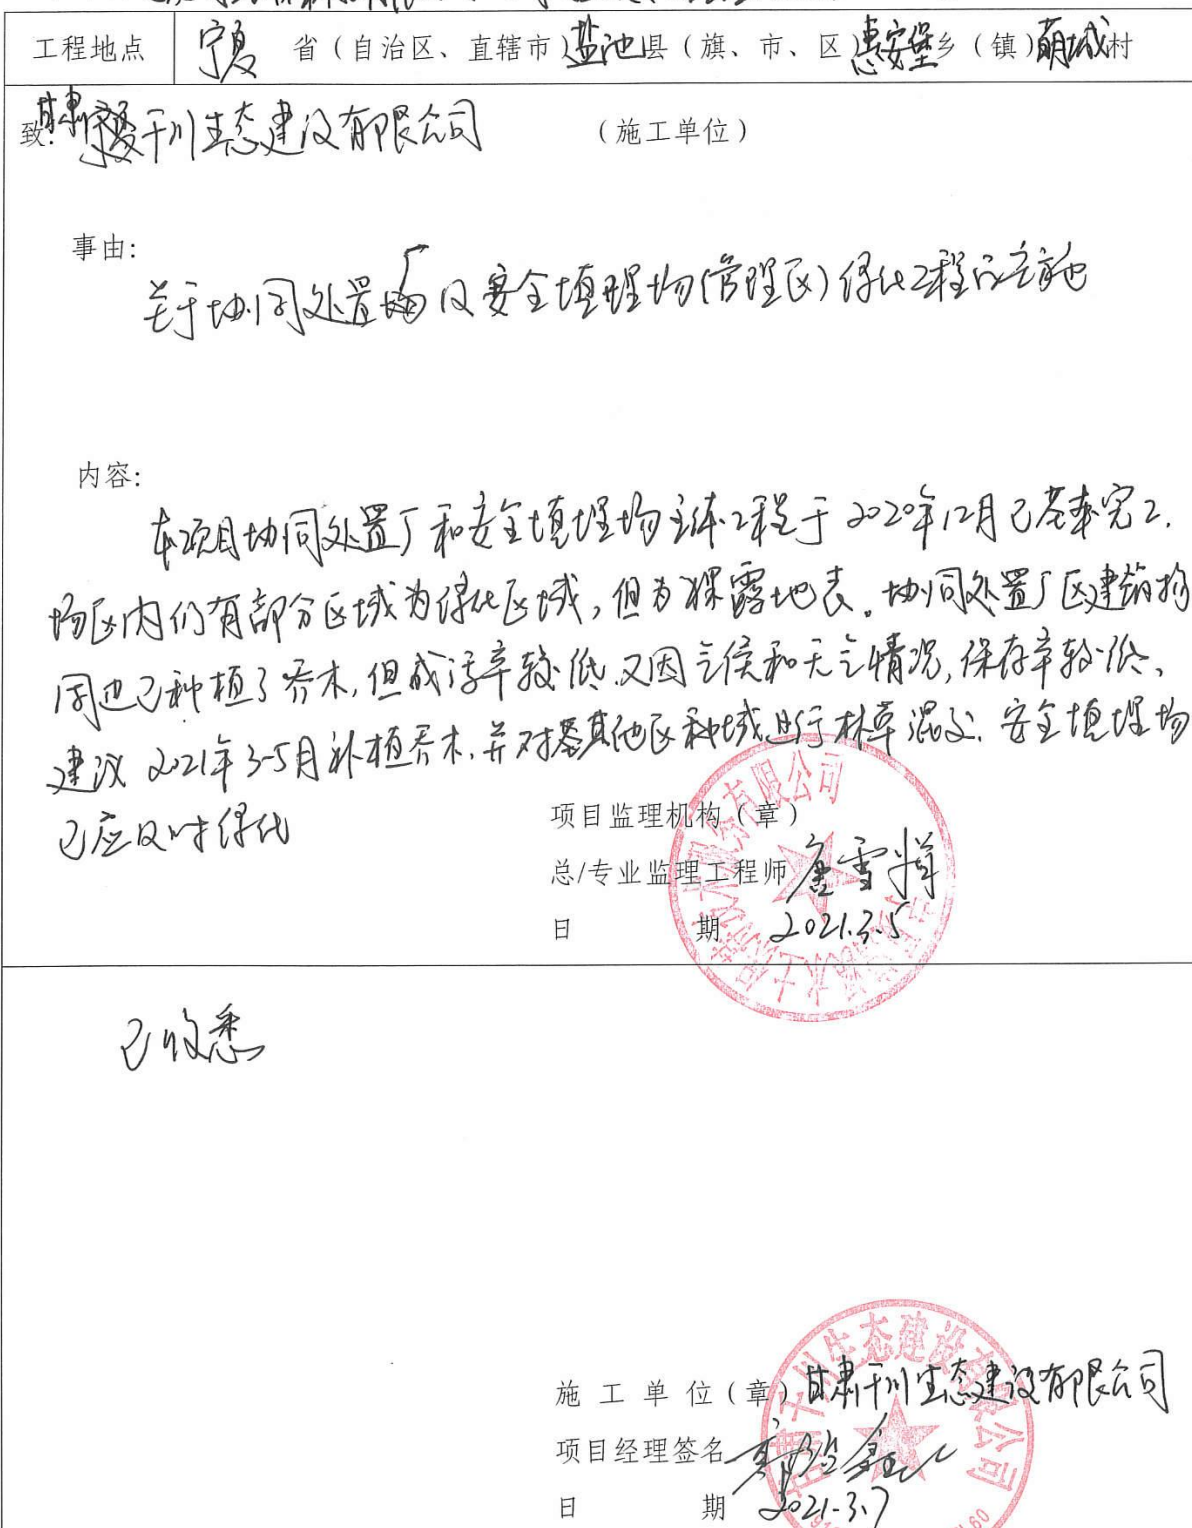 工程地点 宁夏 省（自治区、直辖市）盐池县（旗、市、区）惠安堡乡（镇）萌城村
致：甘肃千川生态建设有限公司 （施工单位）
事由：
关于协同处置厂及安全填埋场(管理区)绿化工程的实施
内容：
本项目协同处置厂和安全填埋场主体工程于2020年12月已基本完工.
场区内仍有部分区域为绿化区域,但为裸露地表。协同处置厂区建筑物
周边已种植了乔木,但成活率较低.又因气侯和天气情况,保存率较低、
建议2021年3-5月补植乔木,并对其他区域进行林草混交.安全填埋场
已应及时绿化
项目监理机构（章）
总/专业监理工程师 唐雪
日 期 2021.3.5
已收悉
施工单位（章）甘肃千川生态建设有限公司
项目经理签名
日 期 2021-3.7